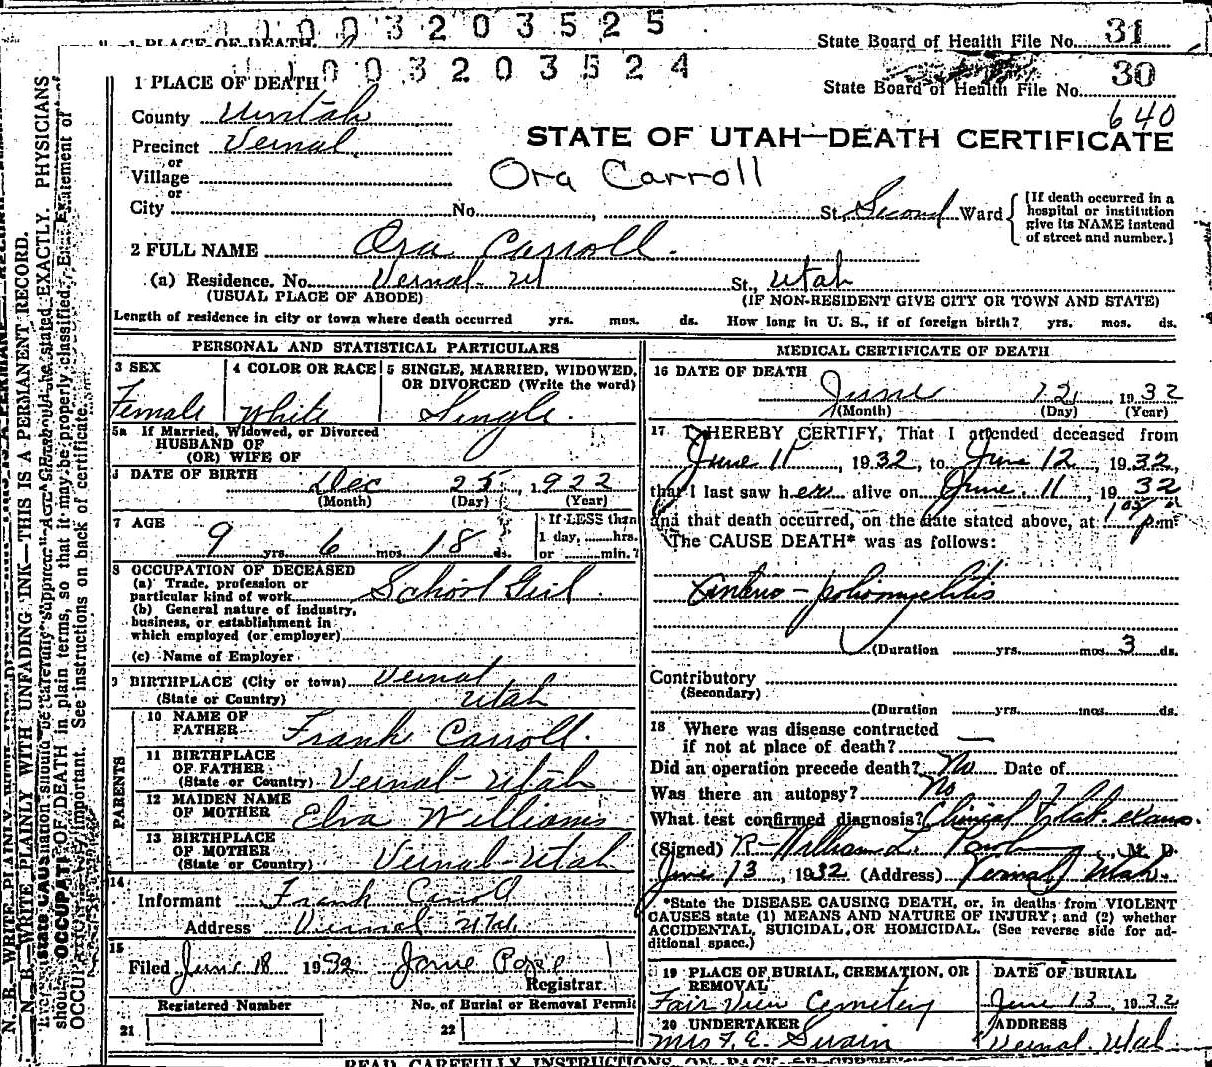 1003203525
1 PLACE OF DEATH
State Board of Health File No. 31
1003203524
1 PLACE OF DEATH
State Board of Health File No. 30
640
County Uintah
STATE OF UTAH—DEATH CERTIFICATE
Precinct Vernal
or
Village
Ora Carroll
or
City No. , St. Second Ward
[If death occurred in a hospital or institution give its NAME instead of street and number.]
2 FULL NAME Ora Carroll.
(a) Residence. No. Vernal Ut St., Utah
(USUAL PLACE OF ABODE) (IF NON-RESIDENT GIVE CITY OR TOWN AND STATE)
Length of residence in city or town where death occurred yrs. mos. ds. How long in U. S., if of foreign birth? yrs. mos. ds.
PERSONAL AND STATISTICAL PARTICULARS
3 SEX 4 COLOR OR RACE 5 SINGLE, MARRIED, WIDOWED,
OR DIVORCED (Write the word)
Female White Single.
5a If Married, Widowed, or Divorced
HUSBAND OF
(OR) WIFE OF
6 DATE OF BIRTH Dec 25, 1922
(Month) (Day) (Year)
7 AGE 9 yrs 6 mos 18 ds.
If LESS than
1 day, hrs.
or min.?
8 OCCUPATION OF DECEASED
(a) Trade, profession or
particular kind of work School Girl.
(b) General nature of industry,
business, or establishment in
which employed (or employer)
(c) Name of Employer
9 BIRTHPLACE (City or town) Vernal
(State or Country) Utah
PARENTS
10 NAME OF
FATHER Frank Carroll.
11 BIRTHPLACE
OF FATHER
(State or Country) Vernal-Utah
12 MAIDEN NAME
OF MOTHER Elva Williams
13 BIRTHPLACE
OF MOTHER
(State or Country) Vernal-Utah
14
Informant Frank Carroll
Address Vernal Utah.
15
Filed June 18 1932
Registrar
Registered Number No. of Burial or Removal Permit
21 22
MEDICAL CERTIFICATE OF DEATH
16 DATE OF DEATH
June 12, 1932
(Month) (Day) (Year)
17 I HEREBY CERTIFY, That I attended deceased from
June 11, 1932, to June 12, 1932,
that I last saw her alive on June 11, 1932
and that death occurred, on the date stated above, at p.m.
The CAUSE DEATH* was as follows:
poliomyelitis
(Duration yrs. mos. 3 ds.
Contributory
(Secondary)
(Duration yrs. mos. ds.
18 Where was disease contracted
if not at place of death? —
Did an operation precede death? No Date of
Was there an autopsy? No
What test confirmed diagnosis? Clinical & Lab. exams.
(Signed) M. D.
June 13, 1932 (Address) Vernal, Utah.
*State the DISEASE CAUSING DEATH, or, in deaths from VIOLENT
CAUSES state (1) MEANS AND NATURE OF INJURY; and (2) whether
ACCIDENTAL, SUICIDAL, OR HOMICIDAL. (See reverse side for ad-
ditional space.)
19 PLACE OF BURIAL, CREMATION, OR
REMOVAL
Fair View Cemetery
DATE OF BURIAL
June 13, 1932
20 UNDERTAKER
Mrs F. E. Swain
ADDRESS
Vernal. Utah.
N. B.—WRITE PLAINLY WITH UNFADING INK—THIS IS A PERMANENT RECORD.
READ CAREFULLY INSTRUCTIONS ON BACK OF CERTIFICATE